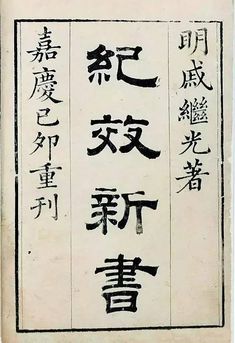 明戚繼光著
紀效新書
嘉慶己卯重刊